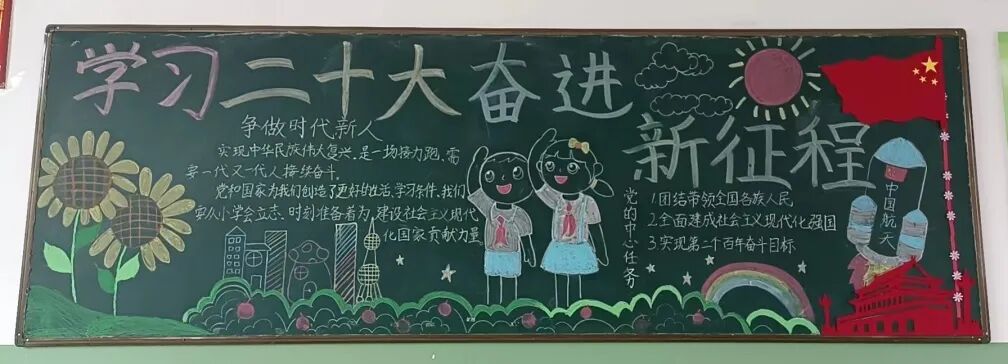 学习二十大奋进
新征程
争做时代新人
实现中华民族伟大复兴,是一场接力跑,需
要一代又一代人接续奋斗。
党和国家为我们创造了更好的生活,学习条件,我们
要从小学会立志、时刻准备着为,建设社会主义现代
化国家贡献力量
党的中心任务
1.团结带领全国各族人民
2.全面建成社会主义现代化强国
3.实现第二个百年奋斗目标
中国航天